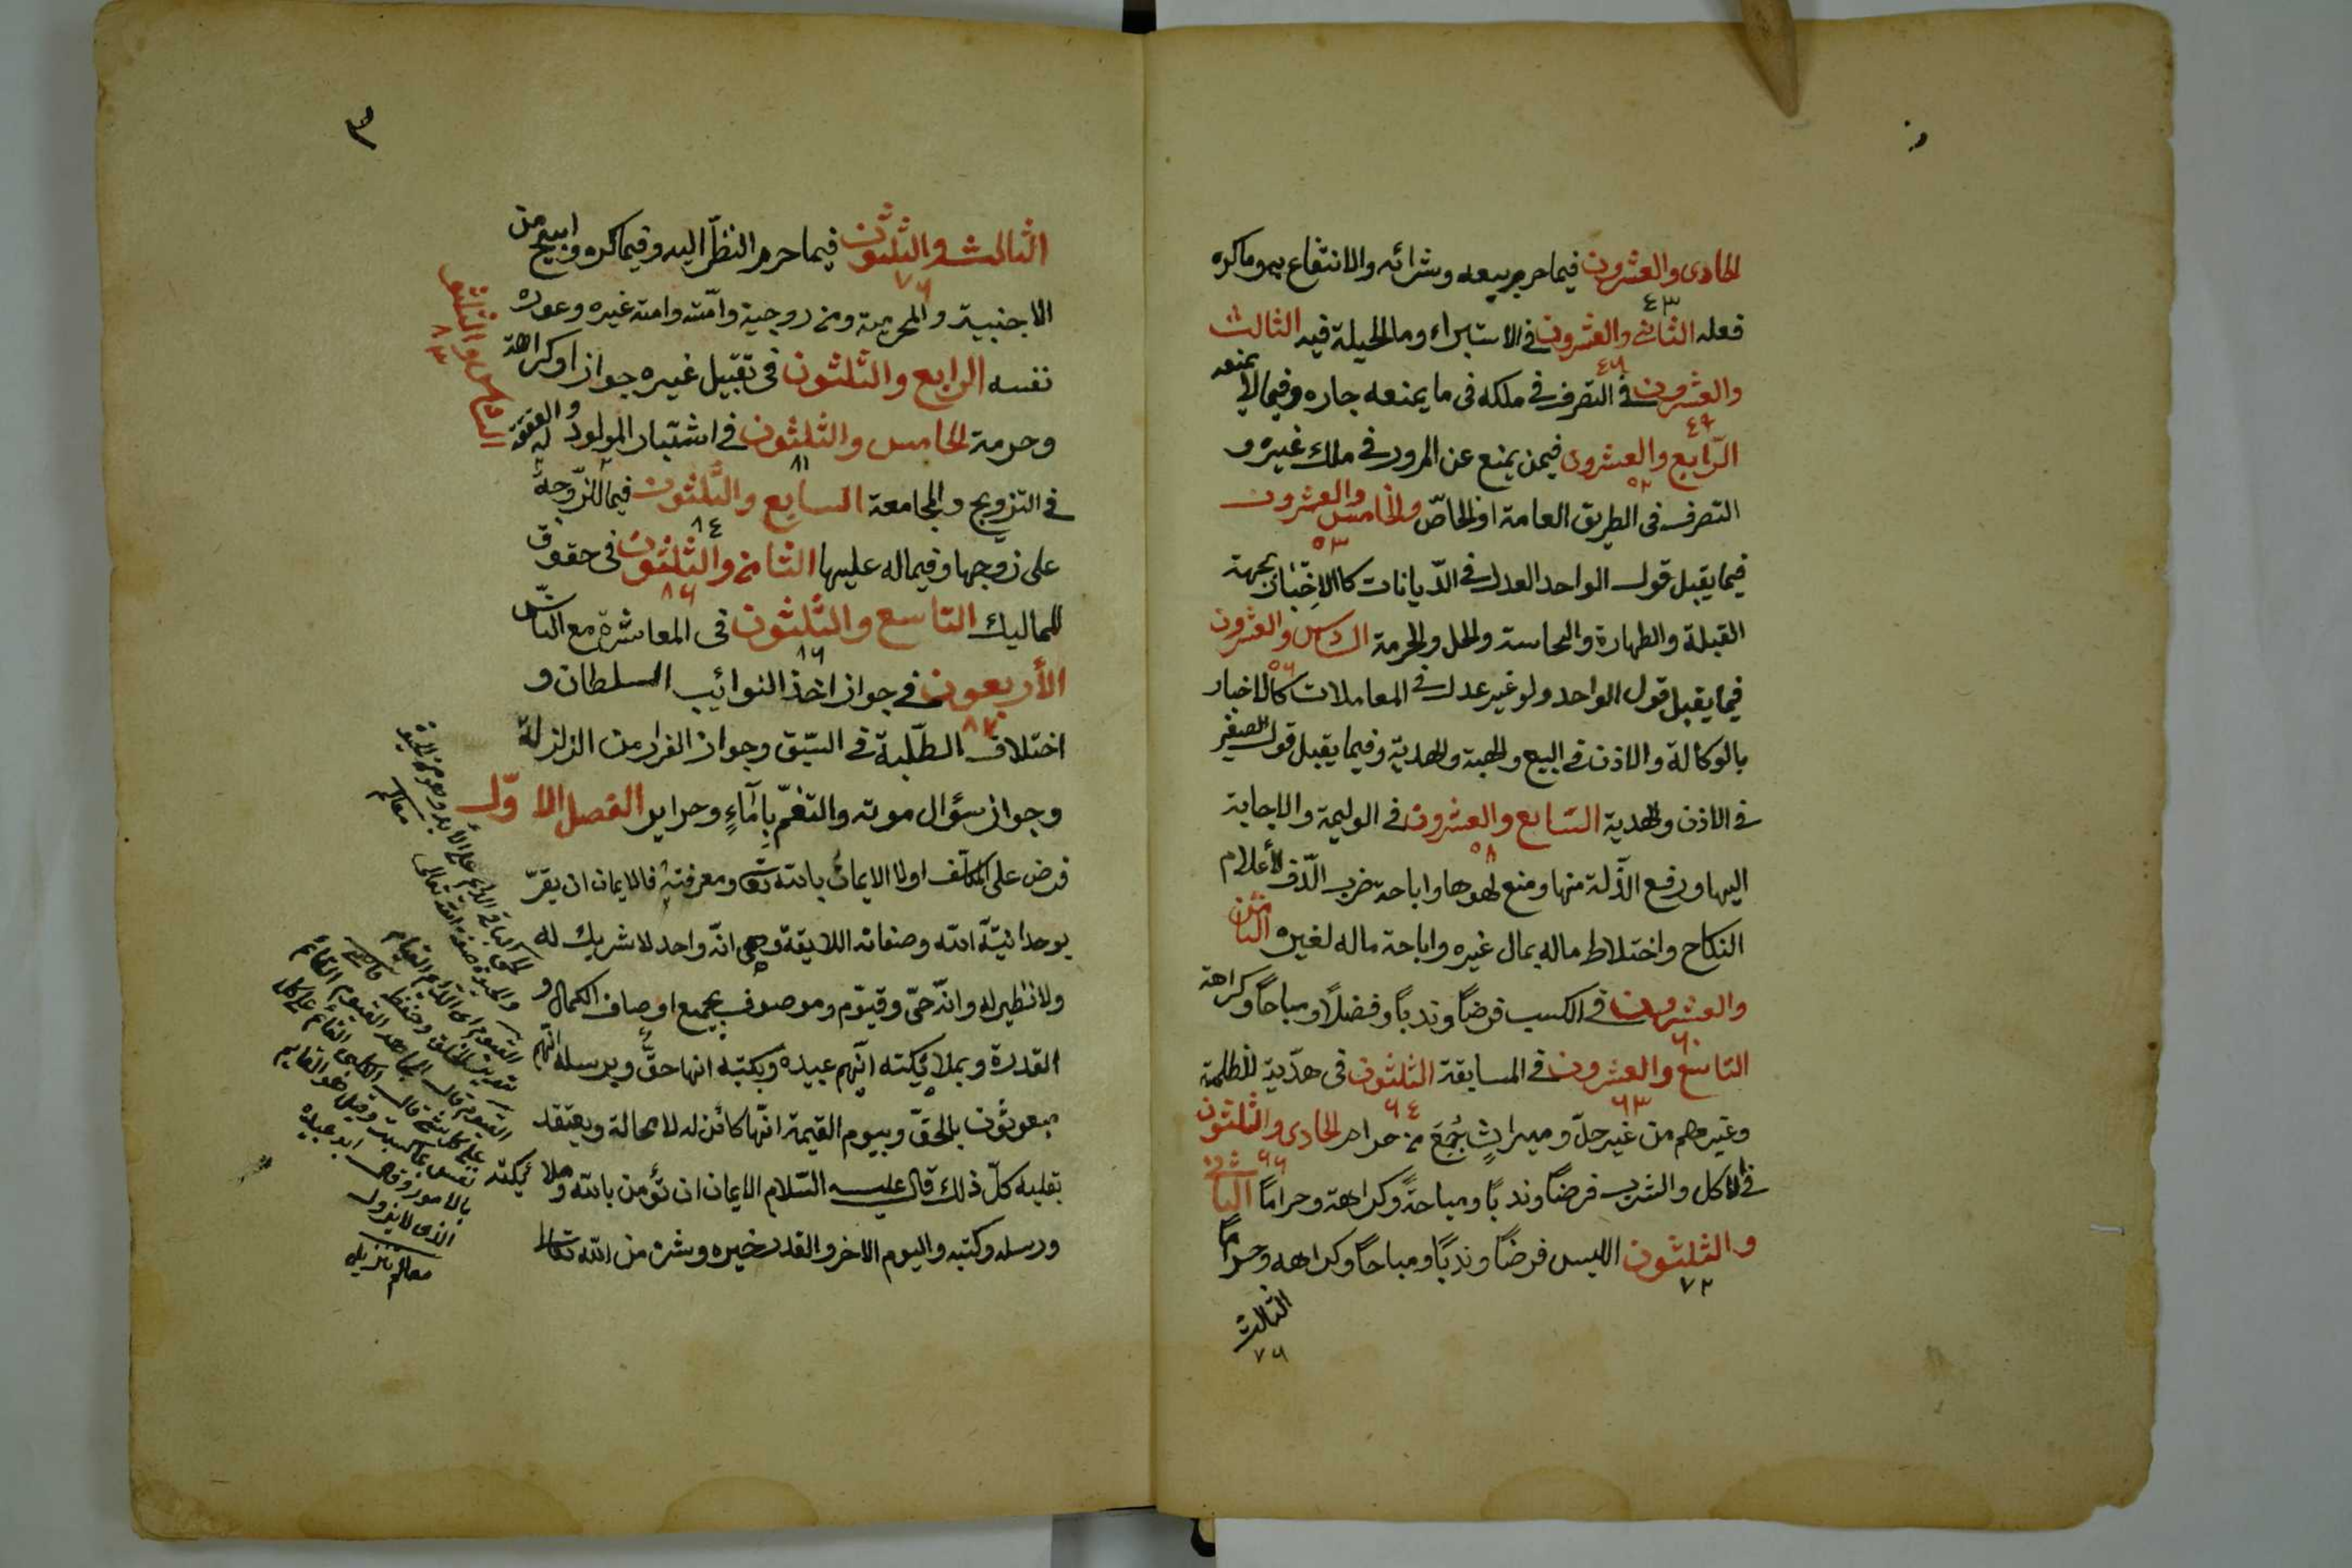 الحادى والعشرون فيما حرم بيعه وشرائه والانتفاع به وما كره
٤٣
فعله الثانى والعشرون فى الاستبراء وما الحيلة فيه الثالث
٤٦
والعشرون فى التصرف فى ملكه فى ما يمنعه جاره وفيما لا يمنعه
٤٩
الرّابع والعشرون فيمن يمنع عن المرور فى ملك غيره و
٥٢
التصرف فى الطريق العامة او الخاصّ والخامس والعشرون
٥٣
فيما يقبل قول الواحد العدل فى الدّيانات كالاخبار بجهة
القبلة والطهارة والنجاسة والحل والحرمة السادس والعشرون
٥٦
فيما يقبل قول الواحد ولو غير عدل فى المعاملات كالاخبار
بالوكالة والاذن فى البيع والهبة والهدية وفيما يقبل قول الصغير
فى الاذن والهدية السّابع والعشرون فى الوليمة والاجابة
٥٨
اليها ورفع الذّلة منها ومنع لهوها واباحة ضرب الدّف لأعلام
النكاح واختلاط ماله بمال غيره واباحة ماله لغيره الثامن
والعشرون فى الكسب فرضاً وندباً وفضلاً ومباحاً وكراهة
٦٠
التاسع والعشرون فى المسابقة الثلثون فى هدّية للظلمة
٦٣ ٦٤
وغيرهم من غير حلّ وميراثٍ جُمِعَ من حرام الحادى والثلثون
٦٦
فى الاكل والشرب فرضاً وندباً ومباحةً وكراهة وحراماً الثانى
والثلثون اللبس فرضاً وندبًا ومباحاً وكراهه وحراماً
٧٢
الثالث
٧٦
٣
الثالث والثلثون فيما حرم النظر اليه وفيما كره وابيح من
٧٦
الاجنبية والمحرمة ومن زوجية وامّته وامة غيره وعورة
نفسه الرابع والثلثون فى تقبيل غيره جواز او كراهة
وحرمة الخامس والثلثون فى اشتبار المولود والعقيقة له
٨١
السادس والثلثون
٨٣
فى التزويج والمجامعة السابع والثّلثون فيما للزّوجة
٨٤
على زوجها وفيما له عليها الثامن والثلثون فى حقوق
٨٦
المماليك التاسع والثّلثون فى المعاشرة مع النّاس
٨٦
الأربعون فى جواز اخذ النوائب السلطان و
٨٧
اختلاف الطّلبة فى السّبق وجواز الفرار من الزلزلة
وجواز سؤال موته والتغمّ بِامَاءٍ وحراير الفصل الاوّل
فرض على المكلّف اولا الايمان بالله تعا ومعرفته فالايمان ان يقرّ
بوحدانيّة الله وصفاته اللايقة وهى انّه واحد لا شريك له
ولا نظير له وانّه حىّ وقيّوم وموصوف بجميع اوصاف الكمال و
القدرة وبملائكته انّهم عبيده وبكتبه انها حقّ وبرسله انّهم
مبعوثون بالحقّ وبيوم القيمة انّها كائن له لا محالة ويعتقد
بقلبه كلّ ذلك قال عليه السّلام الايمان ان تؤمن بالله وملائكته
ورسله وكتبه واليوم الاخر والقدر خيره وشره من الله تعالى
القيوم القائم على كل
نفس بما كسبت وقيل هو القايم
بالامور وقال ابو عبيده
الذى لا يزول
معالم تنزيل